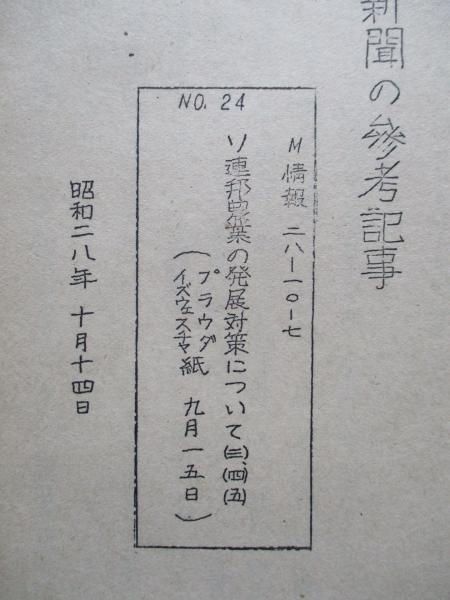 新聞の参考記事
NO. 24
M情報 二八―一〇―七
ソ連邦農業の発展対策について(三)、(四)、(五)
(プラウダ イズヴェスチヤ紙 九月一五日)
昭和二八年 十月十四日